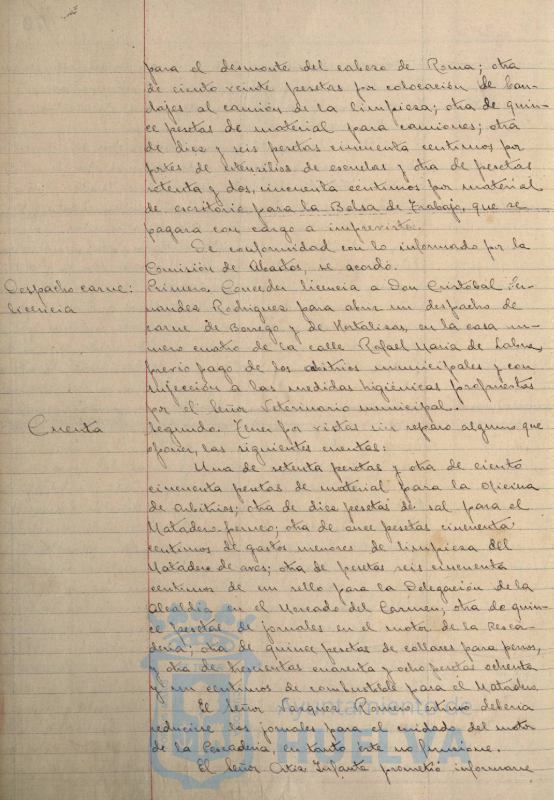 para el desmonte del cabezo de Roma; otra
de ciento veinte pesetas por colocación de ban-
dajes al camión de la limpieza; otra de quin-
ce pesetas de material para camiones; otra
de diez y seis pesetas cincuenta centimos por
portes de utensilios de escuelas y otra de pesetas
setenta y dos, cincuenta centimos por material
de escritorio para la Bolsa de Trabajo, que se
pagará con cargo a imprevistos.
De conformidad con lo informado por la
Comisión de Abastos, se acordó.
Despacho carne:
licencia
Primero. Conceder licencia a Don Cristóbal Fer-
nandez Rodriguez para abrir un despacho de
carne de Borrego y de Hortalizas, en la casa nu-
mero cuatro de la calle Rafael Maria de Labra,
previo pago de los arbitrios municipales y con
sujección a las medidas higiénicas propuestas
por el Señor Veterinario municipal.
Cuenta
Segundo. Tener por vistas sin reparo alguno que
oponer, las siguientes cuentas:
Una de setenta pesetas y otra de ciento
cincuenta pesetas de material para la Oficina
de Arbitrios; otra de diez pesetas de sal para el
Matadero; otra de once pesetas cincuenta
centimos de gastos menores de limpieza del
Matadero de aves; otra de pesetas seis cincuenta
centimos de un sello para la Delegación de la
Alcaldia en el Mercado del Carmen; otra de quin-
ce pesetas de jornales en el motor de la Pesca-
deria; otra de quince pesetas de collares para perros,
y otra de trescientas cuarenta y ocho pesetas ochenta
y un centimos de combustible para el Matadero.
El Señor Vazquez Romero estimó debería
reducirse los jornales para el cuidado del motor
de la Pescaderia, en tanto éste no funcione.
El Señor Infante prometió informarse
Ayuntamiento de
HUELVA